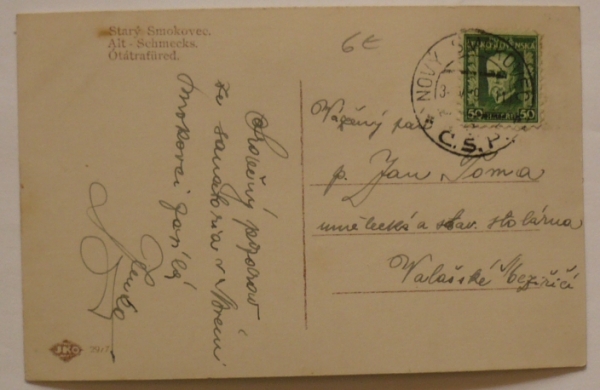 Starý Smokovec.
Alt - Schmecks.
Ótátrafüred.
6€
Srdečný pozdrav
ze sanatoria v Novém
Smokovci
NOVÝ
Č.S.P.
50 50
Vážený pan
p. Jan Toma
umělecká a stav. stolárna
Valašské Meziříčí